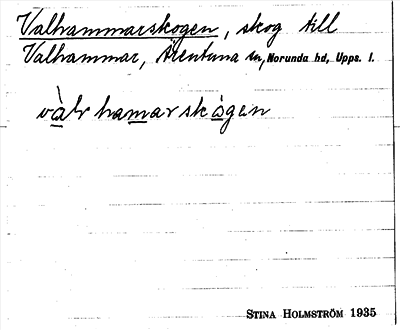 Valhammarskogen, skog till
Valhammar, Ärentuna sn, Norunda hd, Upps. l.
vàlr hamarskògen
STINA HOLMSTRÖM 1935